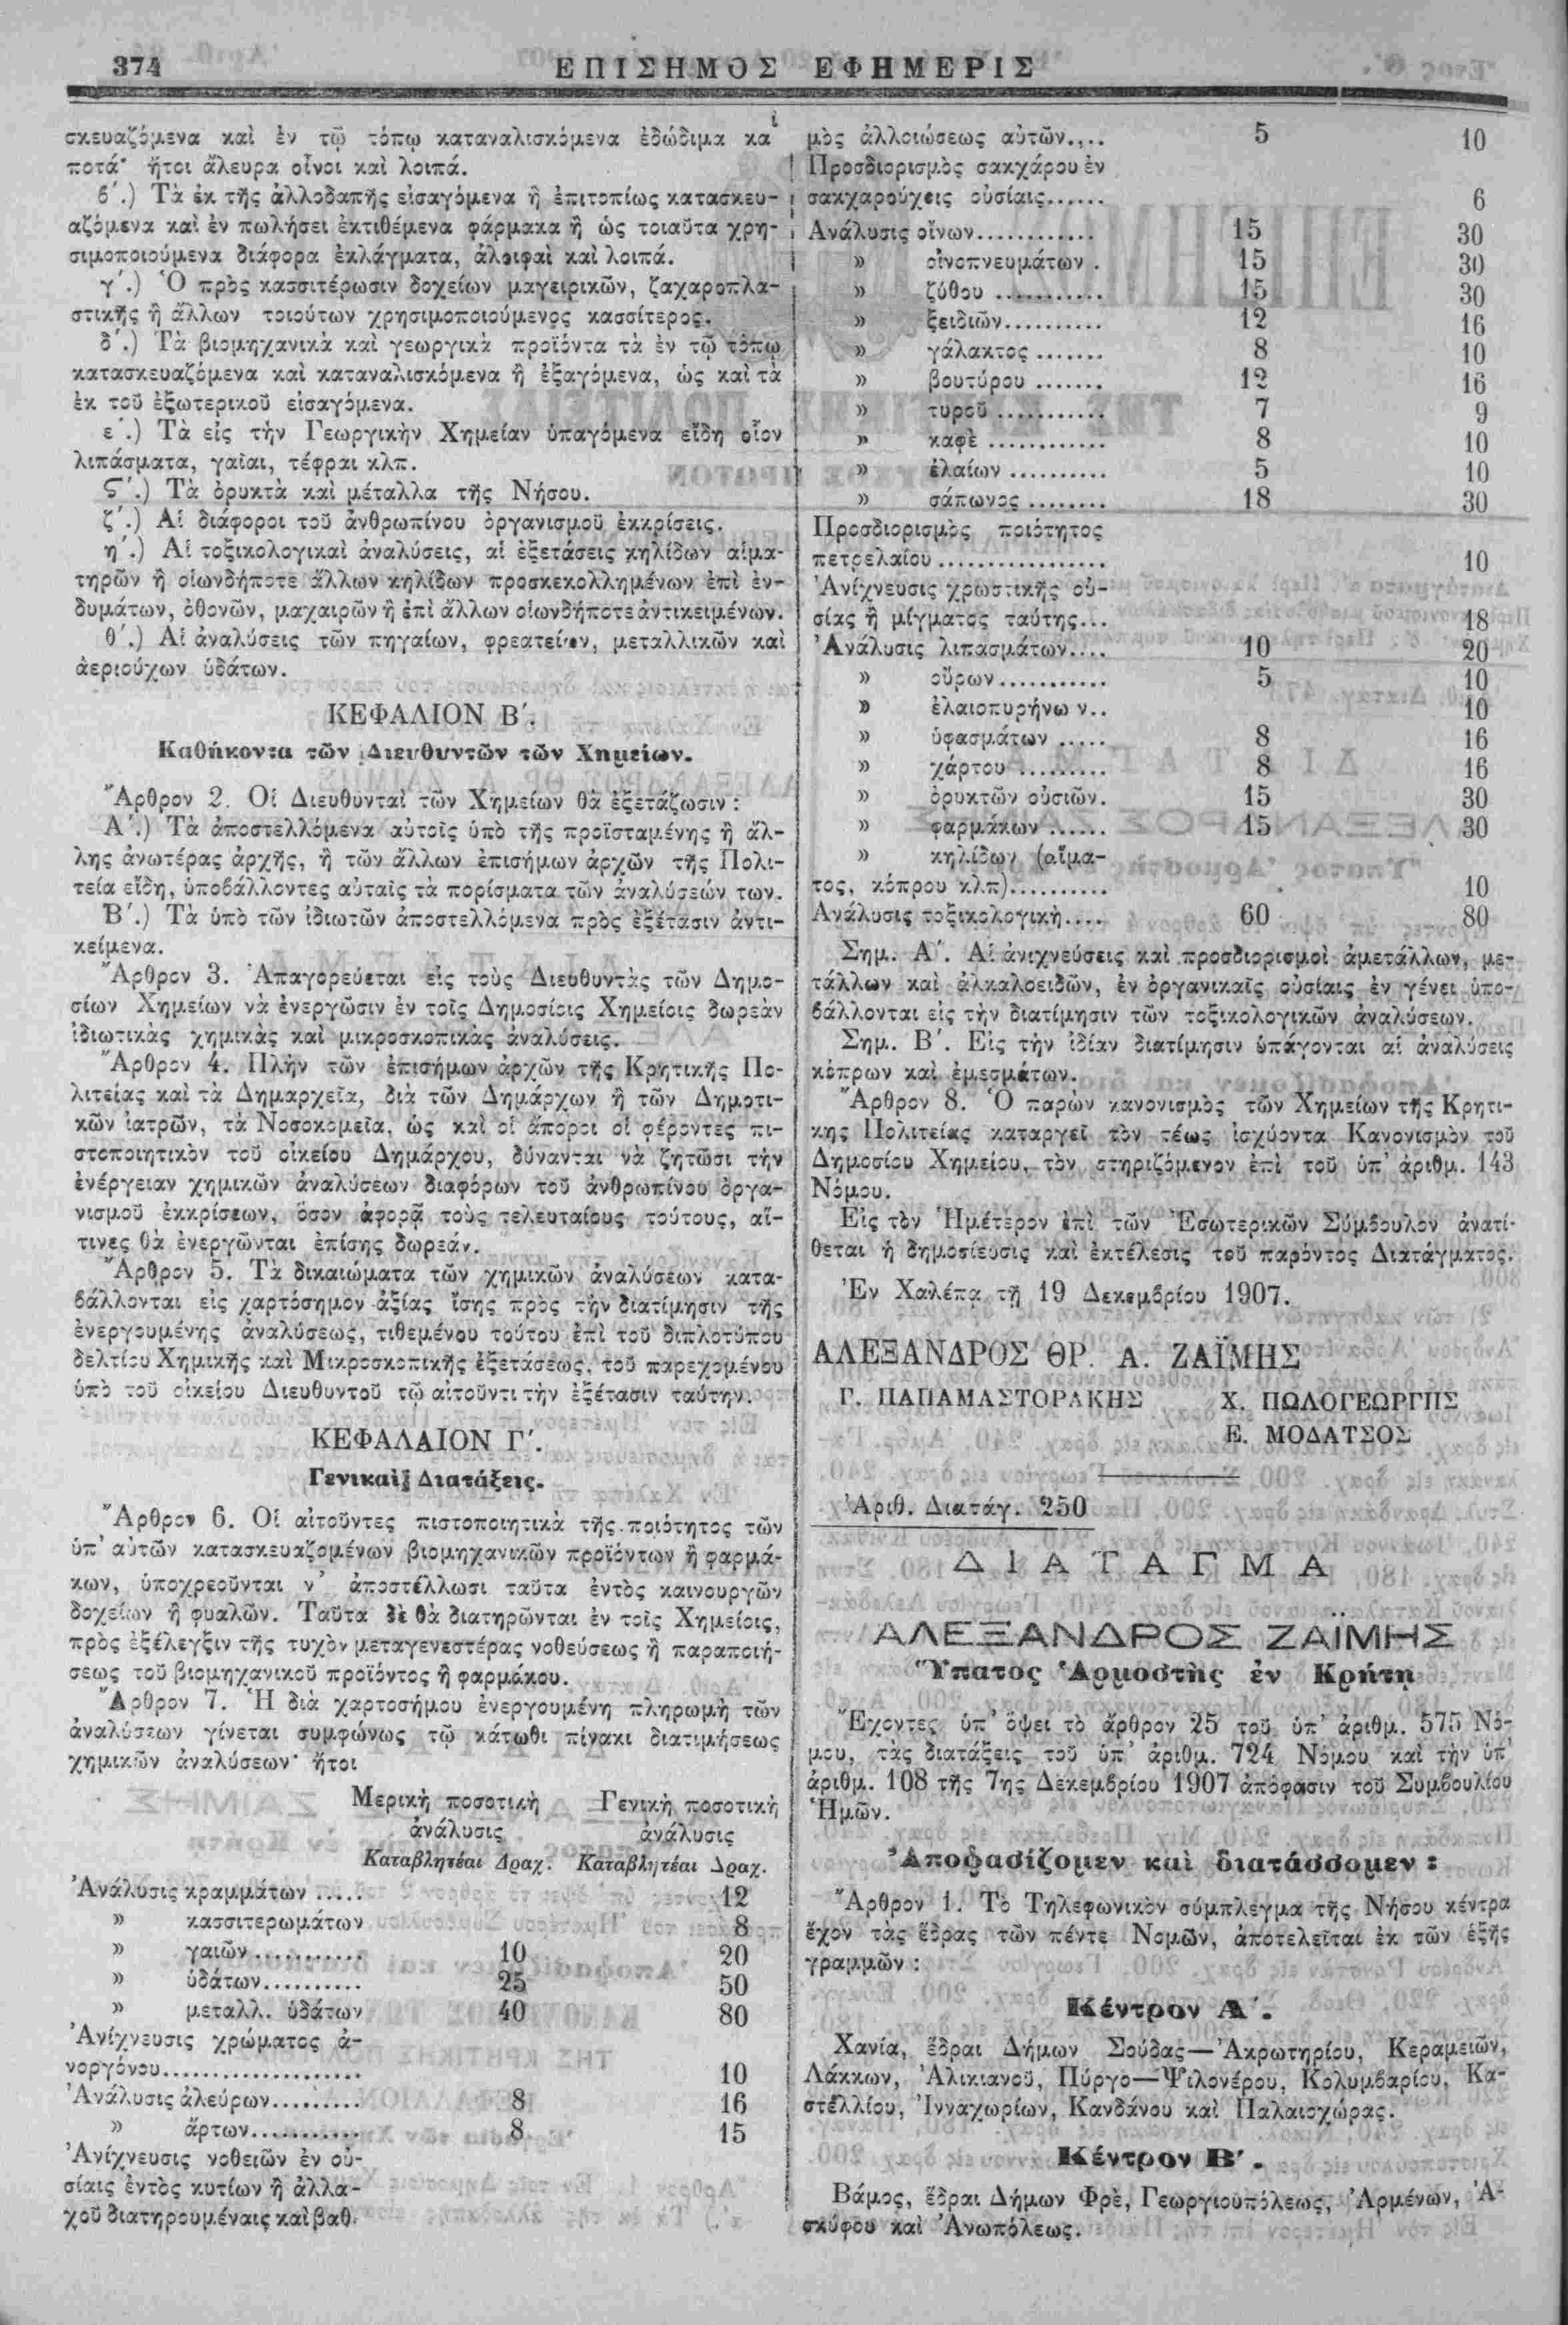 374
ΕΠΙΣΗΜΟΣ ΕΦΗΜΕΡΙΣ
σκευαζόμενα καὶ ἐν τῷ τόπῳ καταναλισκόμενα ἐδώδιμα καὶ
ποτά· ἤτοι ἄλευρα οἶνοι καὶ λοιπά.
β΄.) Τὰ ἐκ τῆς ἀλλοδαπῆς εἰσαγόμενα ἢ ἐπιτοπίως κατασκευ-
αζόμενα καὶ ἐν πωλήσει ἐκτιθέμενα φάρμακα ἢ ὡς τοιαῦτα χρη-
σιμοποιούμενα διάφορα ἐκλάγματα, ἀλοιφαὶ καὶ λοιπά.
γ΄.) Ὁ πρὸς κασσιτέρωσιν δοχείων μαγειρικῶν, ζαχαροπλα-
στικῆς ἢ ἄλλων τοιούτων χρησιμοποιούμενος κασσίτερος.
δ΄.) Τὰ βιομηχανικὰ καὶ γεωργικὰ προϊόντα τὰ ἐν τῷ τόπῳ
κατασκευαζόμενα καὶ καταναλισκόμενα ἢ ἐξαγόμενα, ὡς καὶ τὰ
ἐκ τοῦ ἐξωτερικοῦ εἰσαγόμενα.
ε΄.) Τὰ εἰς τὴν Γεωργικὴν Χημείαν ὑπαγόμενα εἴδη οἷον
λιπάσματα, γαῖαι, τέφραι κλπ.
Ϛ΄.) Τὰ ὀρυκτὰ καὶ μέταλλα τῆς Νήσου.
ζ΄.) Αἱ διάφοροι τοῦ ἀνθρωπίνου ὀργανισμοῦ ἐκκρίσεις.
η΄.) Αἱ τοξικολογικαὶ ἀναλύσεις, αἱ ἐξετάσεις κηλίδων αἱμα-
τηρῶν ἢ οἱωνδήποτε ἄλλων κηλίδων προσκεκολλημένων ἐπὶ ἐν-
δυμάτων, ὀθονῶν, μαχαιρῶν ἢ ἐπὶ ἄλλων οἱωνδήποτε ἀντικειμένων.
θ΄.) Αἱ ἀναλύσεις τῶν πηγαίων, φρεατείων, μεταλλικῶν καὶ
ἀεριούχων ὑδάτων.
ΚΕΦΑΛΙΟΝ Β΄.
Καθήκοντα τῶν Διευθυντῶν τῶν Χημείων.
Ἄρθρον 2. Οἱ Διευθυνταὶ τῶν Χημείων θὰ ἐξετάζωσιν :
Α΄.) Τὰ ἀποστελλόμενα αὐτοῖς ὑπὸ τῆς προϊσταμένης ἢ ἄλ-
λης ἀνωτέρας ἀρχῆς, ἢ τῶν ἄλλων ἐπισήμων ἀρχῶν τῆς Πολι-
τεία εἴδη, ὑποβάλλοντες αὐταῖς τὰ πορίσματα τῶν ἀναλύσεών των.
Β΄.) Τὰ ὑπὸ τῶν ἰδιωτῶν ἀποστελλόμενα πρὸς ἐξέτασιν ἀντι-
κείμενα.
Ἄρθρον 3. Ἀπαγορεύεται εἰς τοὺς Διευθυντὰς τῶν Δημο-
σίων Χημείων νὰ ἐνεργῶσιν ἐν τοῖς Δημοσίοις Χημείοις δωρεὰν
ἰδιωτικὰς χημικὰς καὶ μικροσκοπικὰς ἀναλύσεις.
Ἄρθρον 4. Πλὴν τῶν ἐπισήμων ἀρχῶν τῆς Κρητικῆς Πο-
λιτείας καὶ τὰ Δημαρχεῖα, διὰ τῶν Δημάρχων ἢ τῶν Δημοτι-
κῶν ἰατρῶν, τὰ Νοσοκομεῖα, ὡς καὶ οἱ ἄποροι οἱ φέροντες πι-
στοποιητικὸν τοῦ οἰκείου Δημάρχου, δύνανται νὰ ζητῶσι τὴν
ἐνέργειαν χημικῶν ἀναλύσεων διαφόρων τοῦ ἀνθρωπίνου ὀργα-
νισμοῦ ἐκκρίσεων, ὅσον ἀφορᾷ τοὺς τελευταίους τούτους, αἵ-
τινες θὰ ἐνεργῶνται ἐπίσης δωρεάν.
Ἄρθρον 5. Τὰ δικαιώματα τῶν χημικῶν ἀναλύσεων κατα-
βάλλονται εἰς χαρτόσημον ἀξίας ἴσης πρὸς τὴν διατίμησιν τῆς
ἐνεργουμένης ἀναλύσεως, τιθεμένου τούτου ἐπὶ τοῦ διπλοτύπου
δελτίου Χημικῆς καὶ Μικροσκοπικῆς ἐξετάσεως, τοῦ παρεχομένου
ὑπὸ τοῦ οἰκείου Διευθυντοῦ τῷ αἰτοῦντι τὴν ἐξέτασιν ταύτην.
ΚΕΦΑΛΑΙΟΝ Γ΄.
Γενικαὶ Διατάξεις.
Ἄρθρον 6. Οἱ αἰτοῦντες πιστοποιητικὰ τῆς ποιότητος τῶν
ὑπ᾽ αὐτῶν κατασκευαζομένων βιομηχανικῶν προϊόντων ἢ φαρμά-
κων, ὑποχρεοῦνται ν᾽ ἀποστέλλωσι ταῦτα ἐντὸς καινουργῶν
δοχείων ἢ φυαλῶν. Ταῦτα δὲ θὰ διατηρῶνται ἐν τοῖς Χημείοις,
πρὸς ἐξέλεγξιν τῆς τυχὸν μεταγενεστέρας νοθεύσεως ἢ παραποιή-
σεως τοῦ βιομηχανικοῦ προϊόντος ἢ φαρμάκου.
Ἄρθρον 7. Ἡ διὰ χαρτοσήμου ἐνεργουμένη πληρωμὴ τῶν
ἀναλύσεων γίνεται συμφώνως τῷ κάτωθι πίνακι διατιμήσεως
χημικῶν ἀναλύσεων· ἤτοι
Μερικὴ ποσοτικὴ Γενικὴ ποσοτικὴ
ἀνάλυσις ἀνάλυσις
Καταβλητέαι Δραχ. Καταβλητέαι Δραχ.
Ἀνάλυσις κραμμάτων ..... 12
» κασσιτερωμάτων 8
» γαιῶν ........... 10 20
» ὑδάτων.......... 25 50
» μεταλλ. ὑδάτων 40 80
Ἀνίχνευσις χρώματος ἀ-
νοργόνου.................... 10
Ἀνάλυσις ἀλεύρων......... 8 16
» ἄρτων........... 8 15
Ἀνίχνευσις νοθειῶν ἐν οὐ-
σίαις ἐντὸς κυτίων ἢ ἀλλα-
χοῦ διατηρουμέναις καὶ βαθ-
μὸς ἀλλοιώσεως αὐτῶν.... 5 10
Προσδιορισμὸς σακχάρου ἐν
σακχαρούχεις οὐσίαις...... 6
Ἀνάλυσις οἴνων............ 15 30
» οἰνοπνευμάτων . 15 30
» ζύθου ........... 15 30
» ξειδιῶν.......... 12 16
» γάλακτος ....... 8 10
» βουτύρου ....... 12 16
» τυροῦ ........... 7 9
» καφὲ ............ 8 10
» ἐλαίων .......... 5 10
» σάπωνος ........ 18 30
Προσδιορισμὸς ποιότητος
πετρελαίου ................. 10
Ἀνίχνευσις χρωστικῆς οὐ-
σίας ἢ μίγματος ταύτης... 18
Ἀνάλυσις λιπασμάτων.... 10 20
» οὔρων........... 5 10
» ἐλαιοπυρήνων .. 10
» ὑφασμάτων ..... 8 16
» χάρτου ......... 8 16
» ὀρυκτῶν οὐσιῶν. 15 30
» φαρμάκων ...... 15 30
» κηλίδων (αἵμα-
τος, κόπρου κλπ).......... 10
Ἀνάλυσις τοξικολογικὴ.... 60 80
Σημ. Α΄. Αἱ ἀνιχνεύσεις καὶ προσδιορισμοὶ ἀμετάλλων, με-
τάλλων καὶ ἀλκαλοειδῶν, ἐν ὀργανικαῖς οὐσίαις ἐν γένει ὑπο-
βάλλονται εἰς τὴν διατίμησιν τῶν τοξικολογικῶν ἀναλύσεων.
Σημ. Β΄. Εἰς τὴν ἰδίαν διατίμησιν ὑπάγονται αἱ ἀναλύσεις
κόπρων καὶ ἐμεσμάτων.
Ἄρθρον 8. Ὁ παρὼν κανονισμὸς τῶν Χημείων τῆς Κρητι-
κης Πολιτείας καταργεῖ τὸν τέως ἰσχύοντα Κανονισμὸν τοῦ
Δημοσίου Χημείου, τὸν στηριζόμενον ἐπὶ τοῦ ὑπ᾽ ἀριθμ. 143
Νόμου.
Εἰς τὸν Ἡμέτερον ἐπὶ τῶν Ἐσωτερικῶν Σύμβουλον ἀνατί-
θεται ἡ δημοσίευσις καὶ ἐκτέλεσις τοῦ παρόντος Διατάγματος.
Ἐν Χαλέπᾳ τῇ 19 Δεκεμβρίου 1907.
ΑΛΕΞΑΝΔΡΟΣ ΘΡ. Α. ΖΑΪΜΗΣ
Γ. ΠΑΠΑΜΑΣΤΟΡΑΚΗΣ Χ. ΠΩΛΟΓΕΩΡΓΗΣ
Ε. ΜΟΔΑΤΣΟΣ
Ἀριθ. Διατάγ. 250
ΔΙΑΤΑΓΜΑ
ΑΛΕΞΑΝΔΡΟΣ ΖΑΪΜΗΣ
Ὕπατος Ἁρμοστὴς ἐν Κρήτῃ
Ἔχοντες ὑπ᾽ ὄψει τὸ ἄρθρον 25 τοῦ ὑπ᾽ ἀριθμ. 575 Νό-
μου, τὰς διατάξεις τοῦ ὑπ᾽ ἀριθμ. 724 Νόμου καὶ τὴν ὑπ᾽
ἀριθμ. 108 τῆς 7ης Δεκεμβρίου 1907 ἀπόφασιν τοῦ Συμβουλίου
Ἡμῶν.
Ἀποφασίζομεν καὶ διατάσσομεν :
Ἄρθρον 1. Τὸ Τηλεφωνικὸν σύμπλεγμα τῆς Νήσου κέντρα
ἔχον τὰς ἕδρας τῶν πέντε Νομῶν, ἀποτελεῖται ἐκ τῶν ἑξῆς
γραμμῶν :
Κέντρον Α΄.
Χανία, ἕδραι Δήμων Σούδας—Ἀκρωτηρίου, Κεραμειῶν,
Λάκκων, Ἀλικιανοῦ, Πύργο—Ψιλονέρου, Κολυμβαρίου, Κα-
στελλίου, Ἰνναχωρίων, Κανδάνου καὶ Παλαιοχώρας.
Κέντρον Β΄.
Βάμος, ἕδραι Δήμων Φρὲ, Γεωργιουπόλεως, Ἀρμένων, Ἀ-
σκύφου καὶ Ἀνωπόλεως.